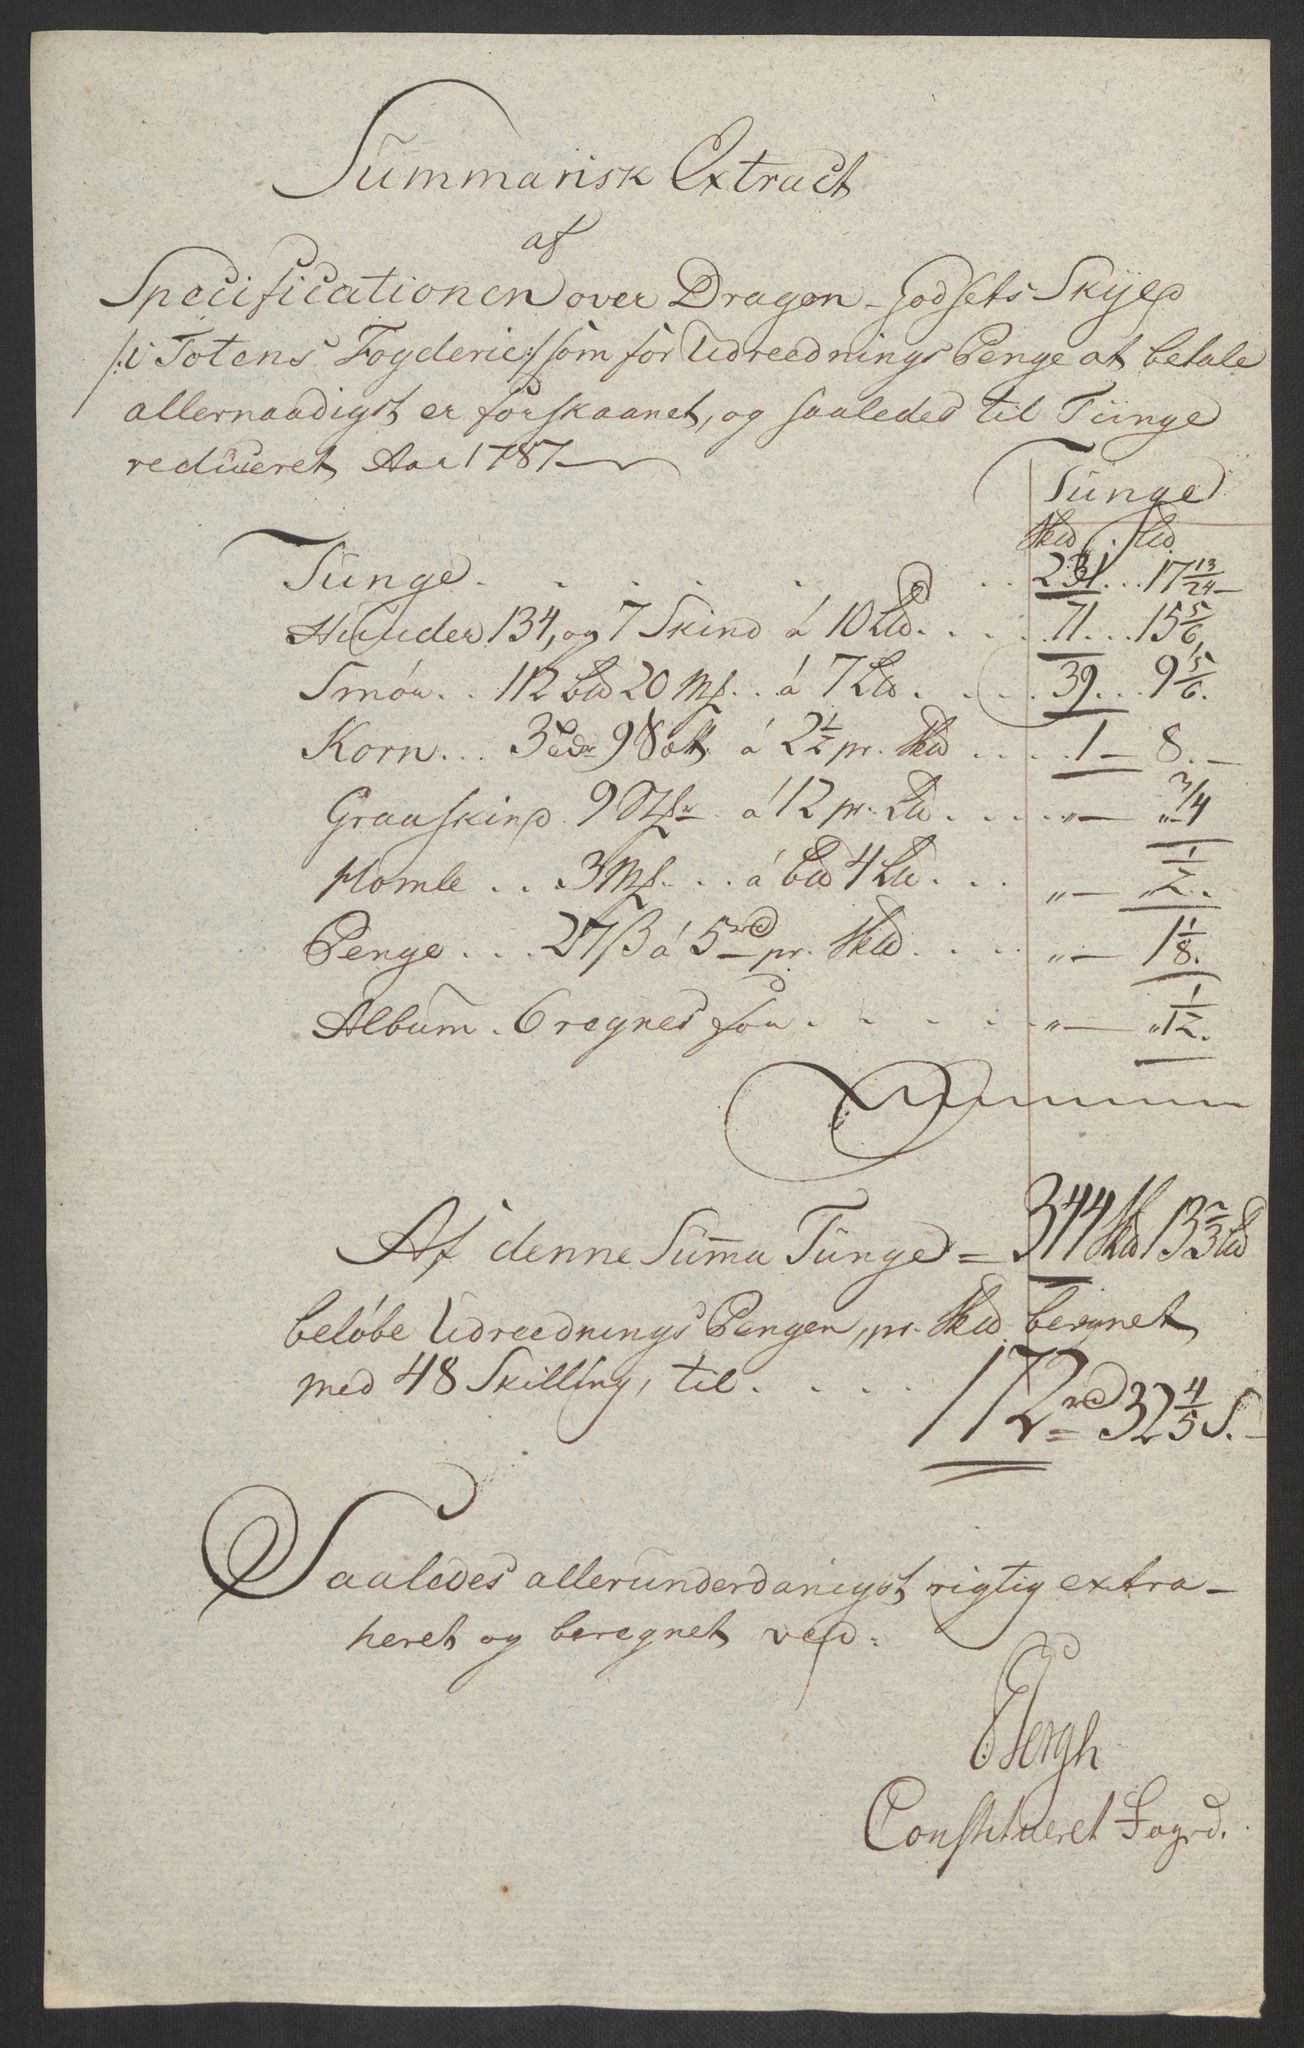 Summarisk Extract
af
Specificationen over Dragon-Godsets Skyld
/: i Totens Fogderie :/ som for Udreednings Penge at betale
allernaadigst er forskaanet, og saaledes til Tunge
reduceret Aar 1787
Tunge
Skd . Lid
Tunge . . . . . . . 231 . . . 17 13/24
Huuder 134, og 7 Skind á 10 Lid . . . . 71 . . . 15 5/6
Smór . . 112 bd 20 Mk . . á 7 Lid . . . . 39 . . . 9 5/6.
Korn . . . 3 9 Sætt á 2 1/2 pr. Skd . . . . 1 — 8. —
Graaskind 9 Stk á 12 pr. Lid . . . . „ — „ 3/4
Homle . . . 3 Mk . . . á bd 4 Lid . . . „ — 1/2 . .
Penge . . . 27 ß á 5 rd pr. Skd . . . . „ — 1 1/8.
Album . 6 regnes for . . . . . „ — „ 1/12.
Af denne Suma Tunge = 344 Skd 13 2/3 Lid
belóbe Udreednings Pengene, pr. Skd beregnet
med 48 Skilling, til . . . . 172 rd 32 4/5 S. —
Saaledes allerunderdanigst rigtig extra-
heret og beregnet ved.
Bergh
Constitueret Fogd.